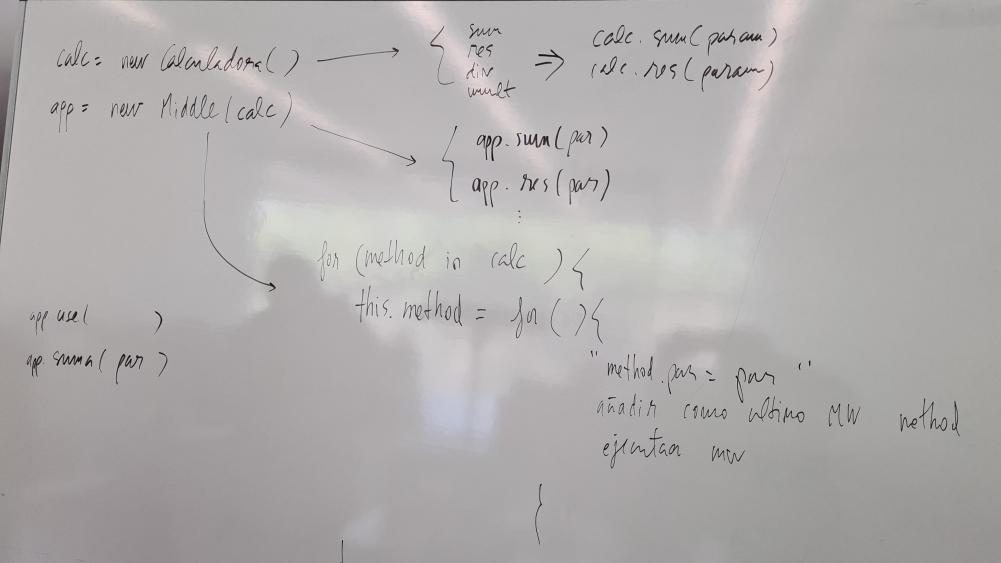 calc = new Calculadora()
sum
res
div
mult
=> calc.sum(param)
calc.res(param)
app = new Middle(calc)
app.sum(par)
app.res(par)
for (method in calc ) {
this.method = for ( ) {
"method.par = par "
añadir como ultimo MW method
ejecutar mw
}
app use( )
app.suma( par )